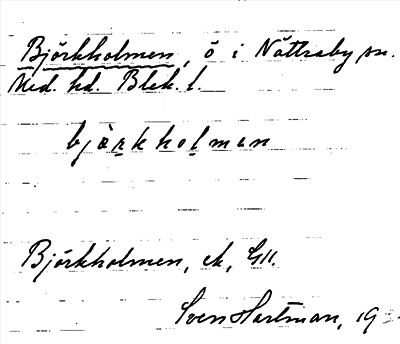 Björkholmen, ö i Nättraby sn.
Med. hd. Blek. l.
björkholmen
Björkholmen, ek, GII.
Sven Hartman, 19